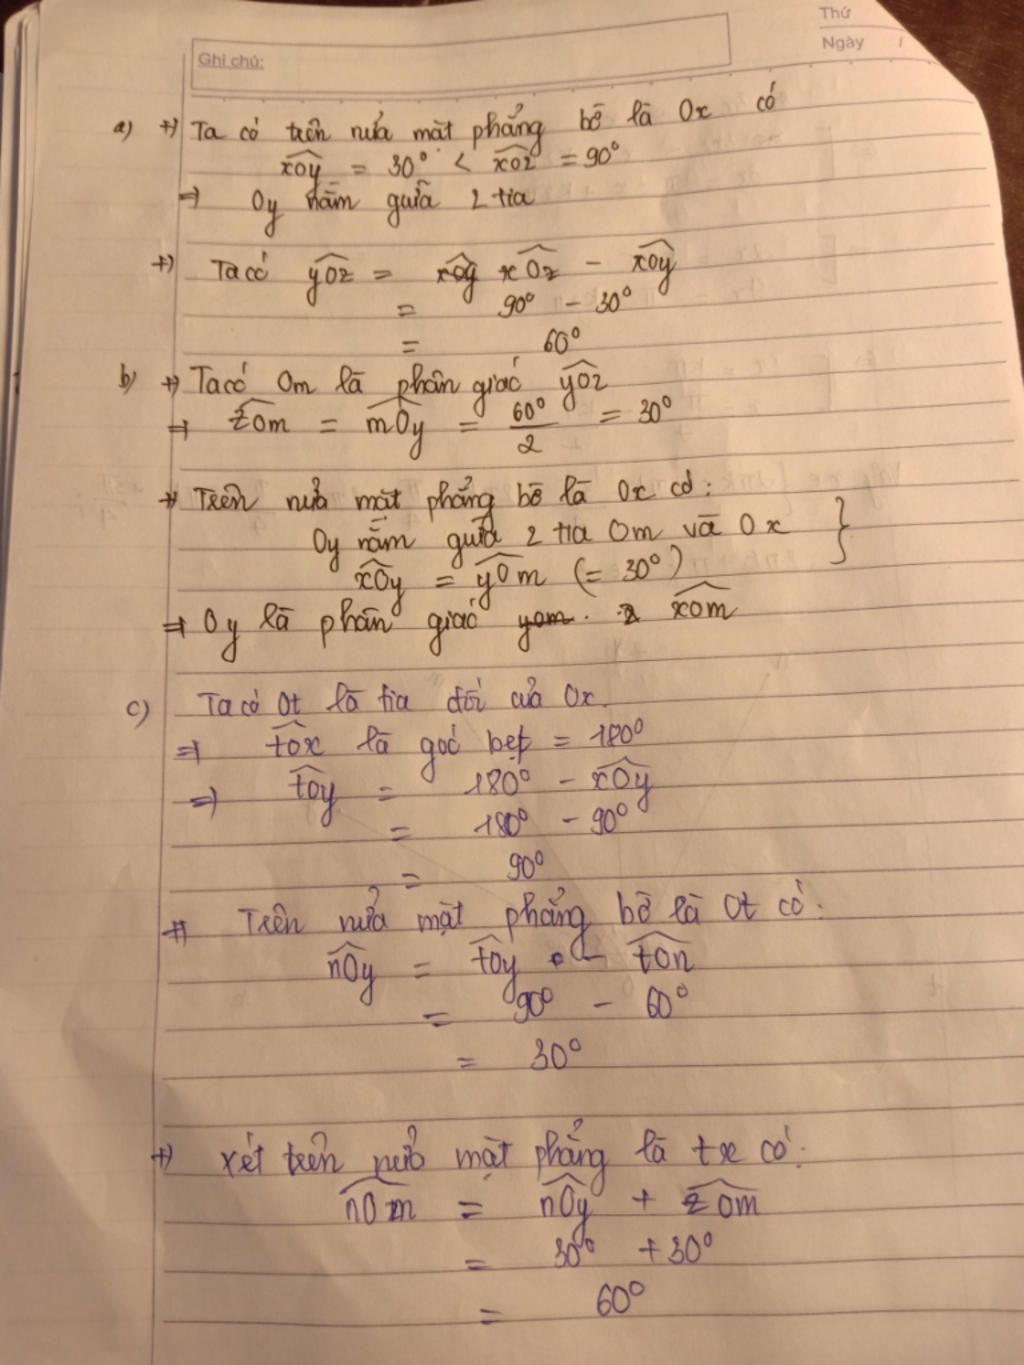 Thứ
Ngày /
Ghi chú:
a) +) Ta có trên nửa mặt phẳng bờ là Ox có
xOy = 30° < xOz = 90°
=> Oy nằm giữa 2 tia
+) Ta có yOz = xOy xOz - xOy
= 90° - 30°
= 60°
b) +) Ta có Om là phân giác yOz
=> zOm = mOy = 60°/2 = 30°
+) Trên nửa mặt phẳng bờ là Ox có:
Oy nằm giữa 2 tia Om và Ox }
xOy = yOm (= 30°)
=> Oy là phân giác yom. xOm
c) Ta có Ot là tia đối của Ox.
=> tOx là góc bẹt = 180°
=> tOy = 180° - xOy
= 180° - 90°
= 90°
+) Trên nửa mặt phẳng bờ là Ot có:
nOy = tOy - tOn
= 90° - 60°
= 30°
+) xét trên nửa mặt phẳng là tx có:
nOm = nOy + zOm
= 30° + 30°
= 60°